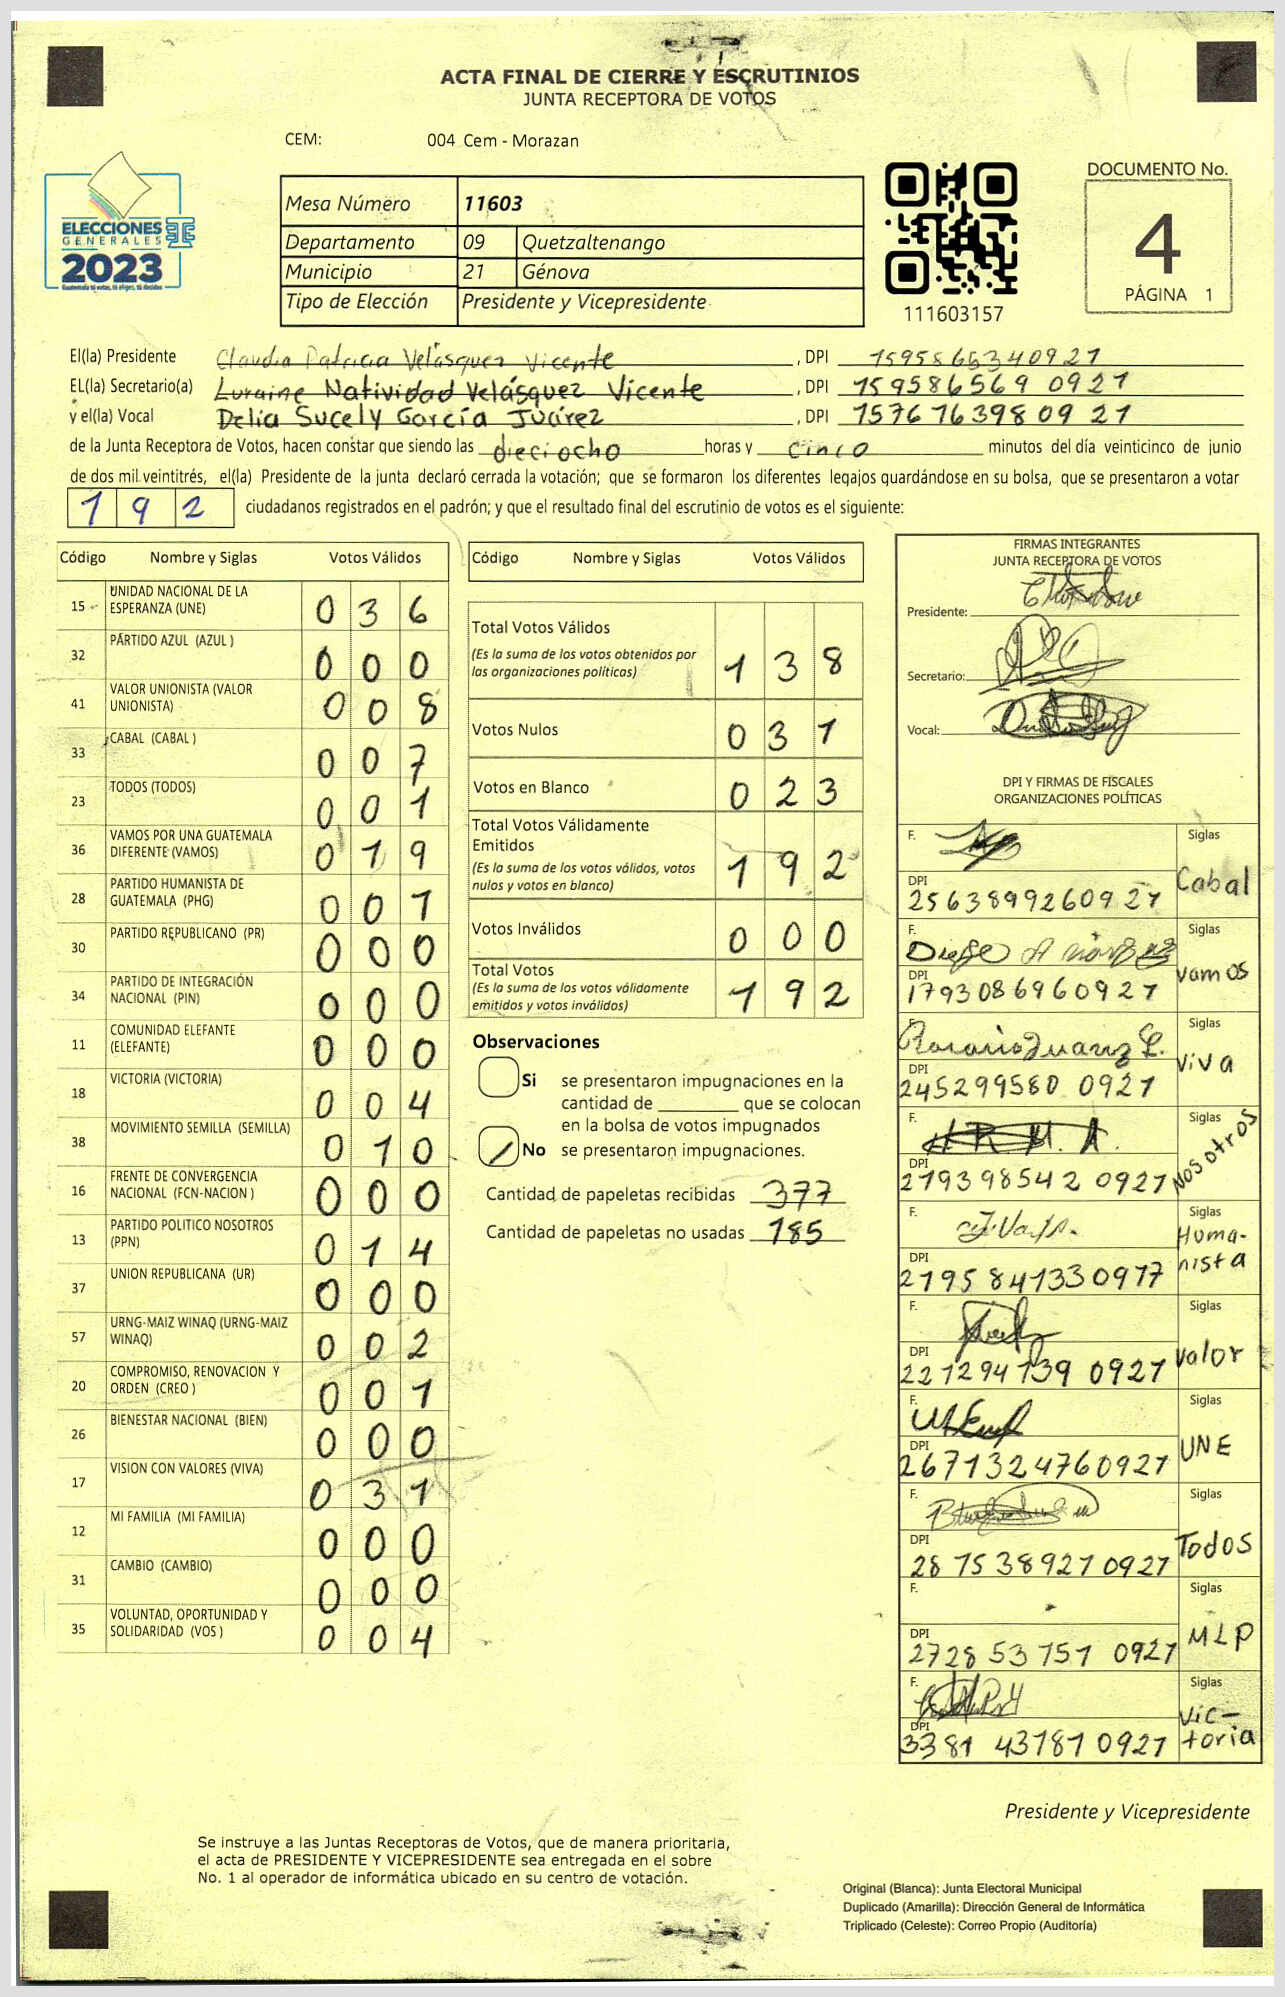 ACTA FINAL DE CIERRE Y ESCRUTINIOS
JUNTA RECEPTORA DE VOTOS
CEM: 004 Cem - Morazan
ELECCIONES
GENERALES
2023
Guatemala tú votas, tú eliges, tú decides
Mesa Número 11603
Departamento 09 Quetzaltenango
Municipio 21 Génova
Tipo de Elección Presidente y Vicepresidente
111603157
DOCUMENTO No.
4
PÁGINA 1
El(la) Presidente Claudia Patricia Velásquez Vicente, DPI 1595865340921
EL(la) Secretario(a) Luraine Natividad Velásquez Vicente, DPI 159586569 0921
y el(la) Vocal Delia Sucely García Juárez, DPI 157616398 0921
de la Junta Receptora de Votos, hacen constar que siendo las dieciocho horas y cinco minutos del día veinticinco de junio
de dos mil veintitrés, el(la) Presidente de la junta declaró cerrada la votación; que se formaron los diferentes legajos guardándose en su bolsa, que se presentaron a votar
192 ciudadanos registrados en el padrón; y que el resultado final del escrutinio de votos es el siguiente:
Código Nombre y Siglas Votos Válidos
15 UNIDAD NACIONAL DE LA ESPERANZA (UNE) 036
32 PARTIDO AZUL (AZUL ) 000
41 VALOR UNIONISTA (VALOR UNIONISTA) 008
33 CABAL (CABAL ) 007
23 TODOS (TODOS) 001
36 VAMOS POR UNA GUATEMALA DIFERENTE (VAMOS) 019
28 PARTIDO HUMANISTA DE GUATEMALA (PHG) 001
30 PARTIDO REPUBLICANO (PR) 000
34 PARTIDO DE INTEGRACIÓN NACIONAL (PIN) 000
11 COMUNIDAD ELEFANTE (ELEFANTE) 000
18 VICTORIA (VICTORIA) 004
38 MOVIMIENTO SEMILLA (SEMILLA) 010
16 FRENTE DE CONVERGENCIA NACIONAL (FCN-NACION ) 000
13 PARTIDO POLITICO NOSOTROS (PPN) 014
37 UNION REPUBLICANA (UR) 000
57 URNG-MAIZ WINAQ (URNG-MAIZ WINAQ) 002
20 COMPROMISO, RENOVACION Y ORDEN (CREO ) 001
26 BIENESTAR NACIONAL (BIEN) 000
17 VISION CON VALORES (VIVA) 031
12 MI FAMILIA (MI FAMILIA) 000
31 CAMBIO (CAMBIO) 000
35 VOLUNTAD, OPORTUNIDAD Y SOLIDARIDAD (VOS ) 004
Código Nombre y Siglas Votos Válidos
Total Votos Válidos 138
(Es la suma de los votos obtenidos por las organizaciones políticas)
Votos Nulos 031
Votos en Blanco 023
Total Votos Válidamente Emitidos 192
(Es la suma de los votos válidos, votos nulos y votos en blanco)
Votos Inválidos 000
Total Votos 192
(Es la suma de los votos válidamente emitidos y votos inválidos)
Observaciones
Si se presentaron impugnaciones en la
cantidad de ________ que se colocan
en la bolsa de votos impugnados
No se presentaron impugnaciones.
Cantidad de papeletas recibidas 377
Cantidad de papeletas no usadas 185
FIRMAS INTEGRANTES
JUNTA RECEPTORA DE VOTOS
Presidente:
Secretario:
Vocal:
DPI Y FIRMAS DE FISCALES
ORGANIZACIONES POLÍTICAS
F. Siglas
DPI 2563899260921 Cabal
F. Siglas
DPI 1793086960921 vamos
F. Rosario Juarez L. Siglas
DPI 245299580 0921 viva
F. Siglas
DPI 219398542 0921 Nosotros
F. Siglas
DPI 2195841330917 Huma-
nista
F. Siglas
DPI 221294139 0921 valor
F. Siglas
DPI 2671324760921 UNE
F. Siglas
DPI 28 15 38921 0921 Todos
F. Siglas
DPI 2728 53 151 0921 MLP
F. Siglas
DPI 3381 43181 0921 Vic-
toria
Presidente y Vicepresidente
Se instruye a las Juntas Receptoras de Votos, que de manera prioritaria,
el acta de PRESIDENTE Y VICEPRESIDENTE sea entregada en el sobre
No. 1 al operador de informática ubicado en su centro de votación.
Original (Blanca): Junta Electoral Municipal
Duplicado (Amarilla): Dirección General de Informática
Triplicado (Celeste): Correo Propio (Auditoría)